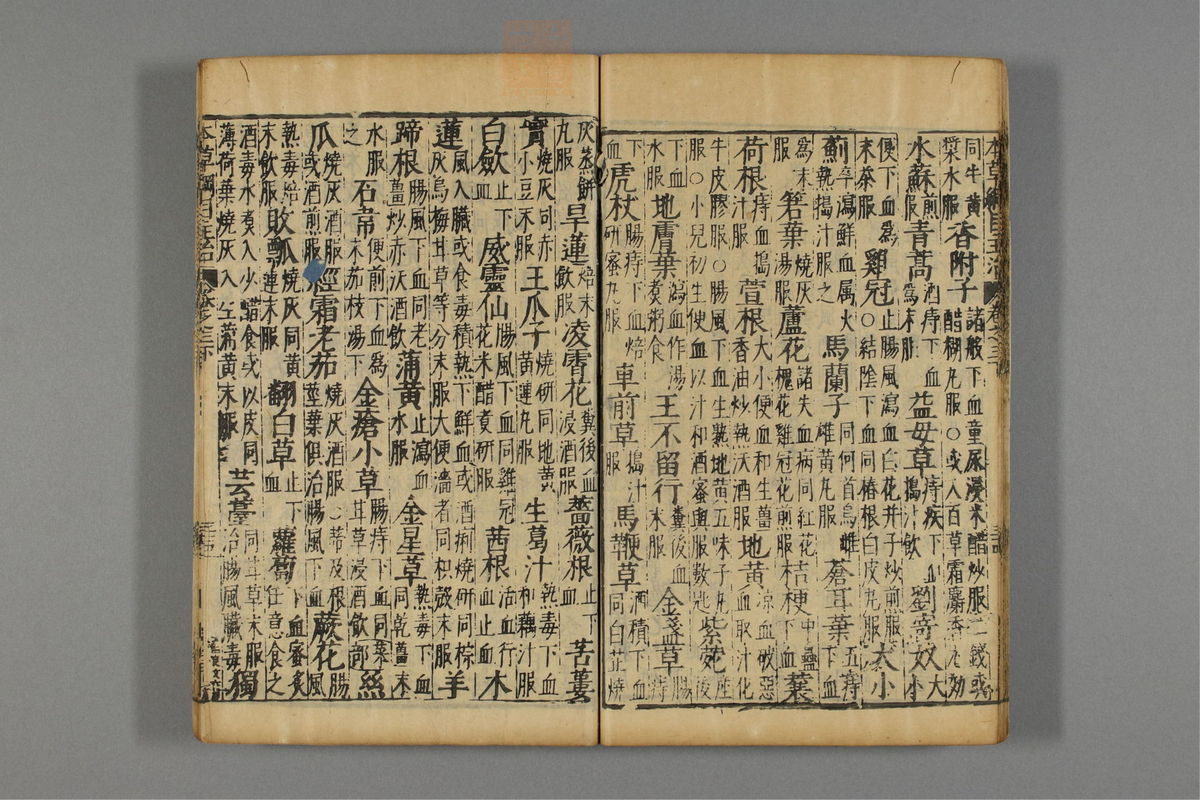 同牛黃漿水服香附子諸般下血童尿浸米醋炒服二錢或醋糊丸服○或入百草霜麝香尤効
水蘇煎服青蒿酒痔下血為末服益母草痔疾下血搗汁飲劉寄奴大小
便下血為末茶服雞冠止腸風瀉血白花并子炒煎服○結陰下血同椿根白皮丸服大小
薊卒瀉鮮血属火熱搗汁服之馬蘭子同何首烏雌雄黃丸服蒼耳葉五痔下血
為末服箬葉燒灰湯服蘆花諸失血病同紅花槐花雞冠花煎服桔梗中蠱下血蘘
荷根痔血搗汁服萱根大小便血和生薑香油炒熱沃酒服地黃凉血破惡血取汁化
牛皮膠服○腸風下血生熟地黃五味子丸服○小兒初生便血以汁和酒蜜與服數匙紫菀產後
下血水服地膚葉瀉血作湯煮粥食王不留行糞後血末服金盞草腸痔下
血虎杖腸痔下血焙研蜜丸服車前草搗汁服馬鞭草酒積下血同白芷燒
灰蒸餅丸服旱蓮焙末飲服凌霄花糞後血浸酒服薔薇根止下血苦蔞
實燒灰同赤小豆末服王瓜子燒研同地黃黃連丸服生葛汁熱毒下血和藕汁服
白斂止下血威靈仙腸風下血同雞冠花米醋煮研服茜根活血行血止血木
蓮風入臟或食毒積熱下鮮血或酒痢燒研同棕灰烏梅甘草等分末服大便濇者同枳殼末服羊
蹄根腸風下血同老薑炒赤沃酒飲蒲黃止瀉血水服金星草熱毒下血同乾薑末
水服之石韋便前下血為末茄枝湯下金瘡小草腸痔下血同葉甘草浸酒飲絲
瓜燒灰酒服或酒煎服經霜老茄燒灰酒服○蒂及根莖葉俱治腸風下血蕨花腸風
熱毒焙末飲服敗瓢燒灰同黃連末服翻白草止下血蘿蔔下血蜜炙任意食之
酒毒水煮入少醋食或以皮同薄荷葉燒灰入生蒲黃末服芸薹同甘草末服治腸風臟毒獨